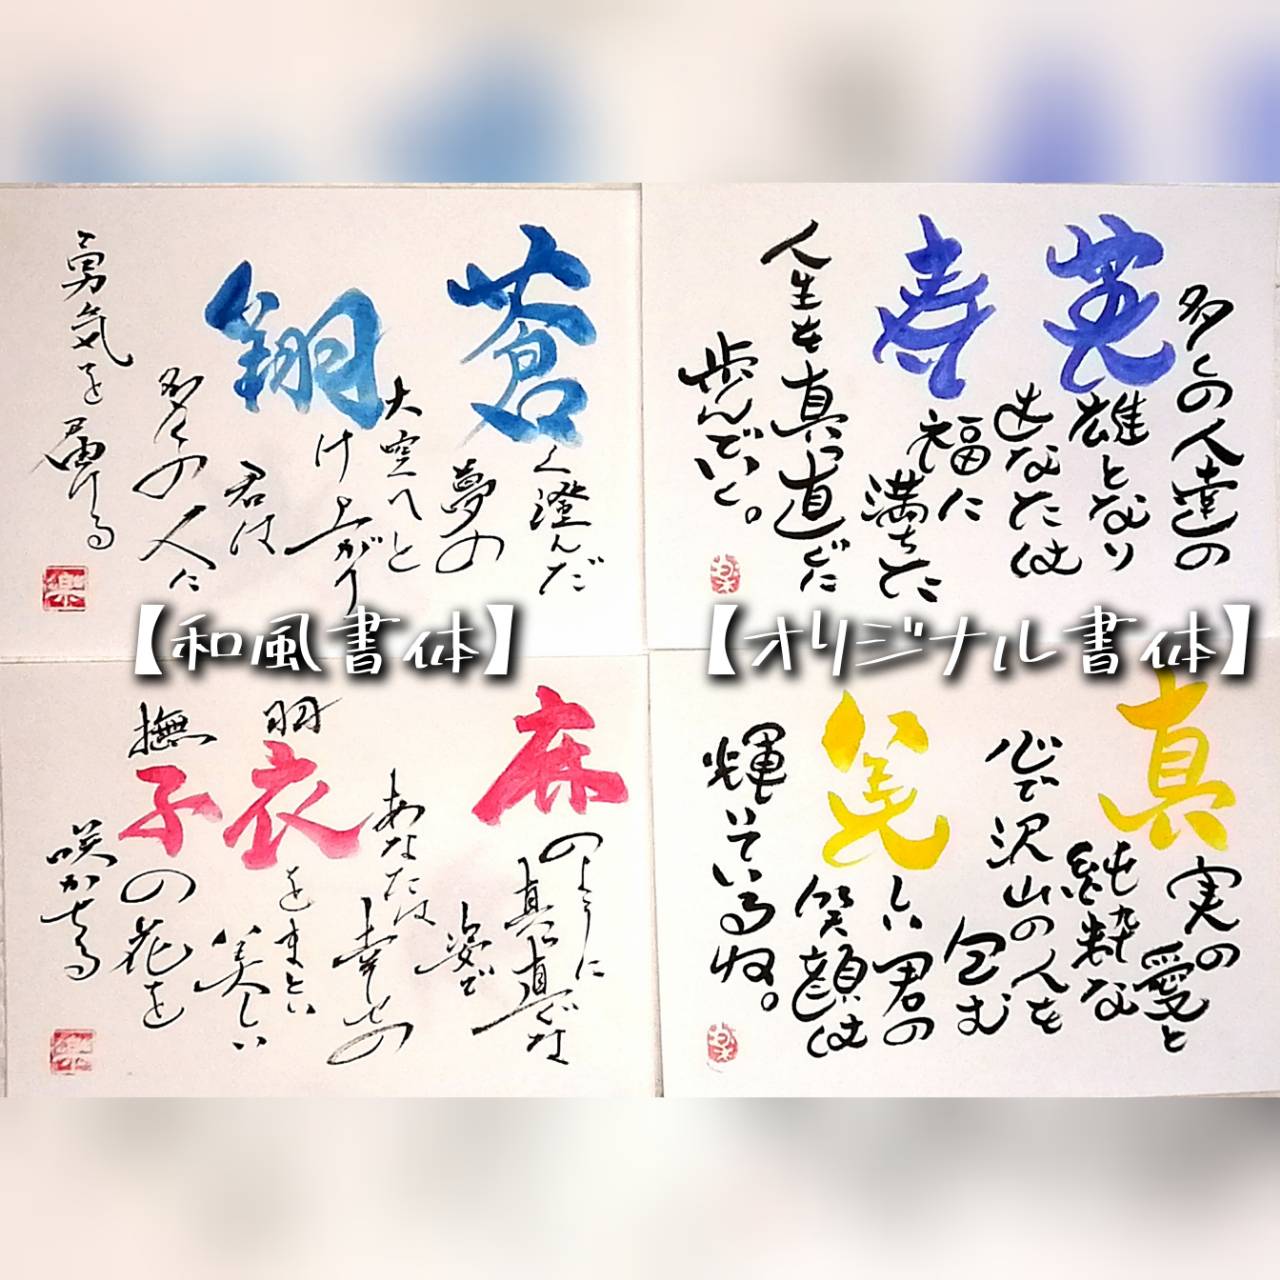 蒼く澄んだ
夢の
大空へと
翔け上がり
君は
多くの人に
勇気を届ける
楽
多くの人達の
英雄となり
あなたは
寿福に
満ちた
人生を真っ直ぐに
歩んでいく。
【和風書体】
【オリジナル書体】
麻のように
真っ直ぐな
姿で
あなたは
幸せの
羽衣をまとい
美しい
撫子の花を
咲かせる
真実の
愛と
純粋な
心で沢山の人を
包む
美しい君の
笑顔は
輝いているね。